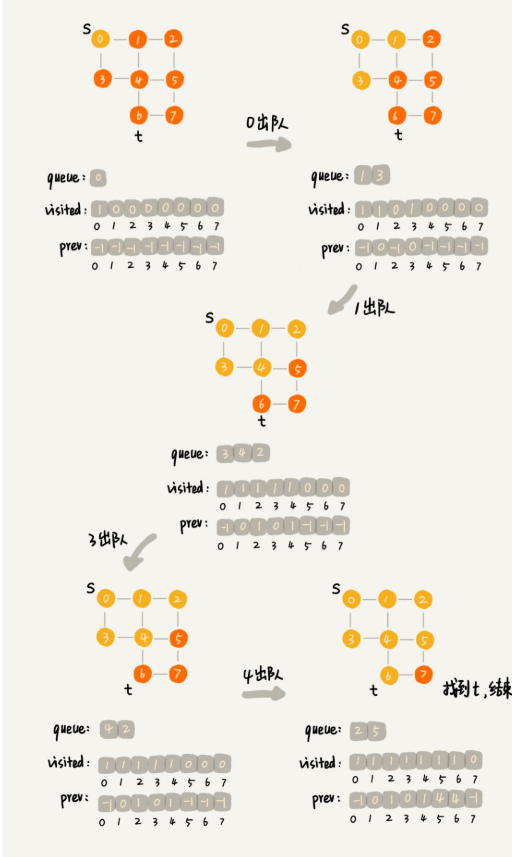 S
0 1 2
3 4 5
6 7
t
queue: 0
visited: 1 0 0 0 0 0 0 0
0 1 2 3 4 5 6 7
prev: -1 -1 -1 -1 -1 -1 -1 -1
0 1 2 3 4 5 6 7
0出队
S
0 1 2
3 4 5
6 7
t
queue: 1 3
visited: 1 1 0 1 0 0 0 0
0 1 2 3 4 5 6 7
prev: -1 0 -1 0 -1 -1 -1 -1
0 1 2 3 4 5 6 7
1出队
S
0 1 2
3 4 5
6 7
t
queue: 3 4 2
visited: 1 1 1 1 1 0 0 0
0 1 2 3 4 5 6 7
prev: -1 0 1 0 1 -1 -1 -1
0 1 2 3 4 5 6 7
3出队
S
0 1 2
3 4 5
6 7
t
queue: 4 2
visited: 1 1 1 1 1 0 0 0
0 1 2 3 4 5 6 7
prev: -1 0 1 0 1 -1 -1 -1
0 1 2 3 4 5 6 7
4出队
S
0 1 2
3 4 5
6 7
t
找到t,结束
queue: 2 5
visited: 1 1 1 1 1 1 1 0
0 1 2 3 4 5 6 7
prev: -1 0 1 0 1 4 4 -1
0 1 2 3 4 5 6 7